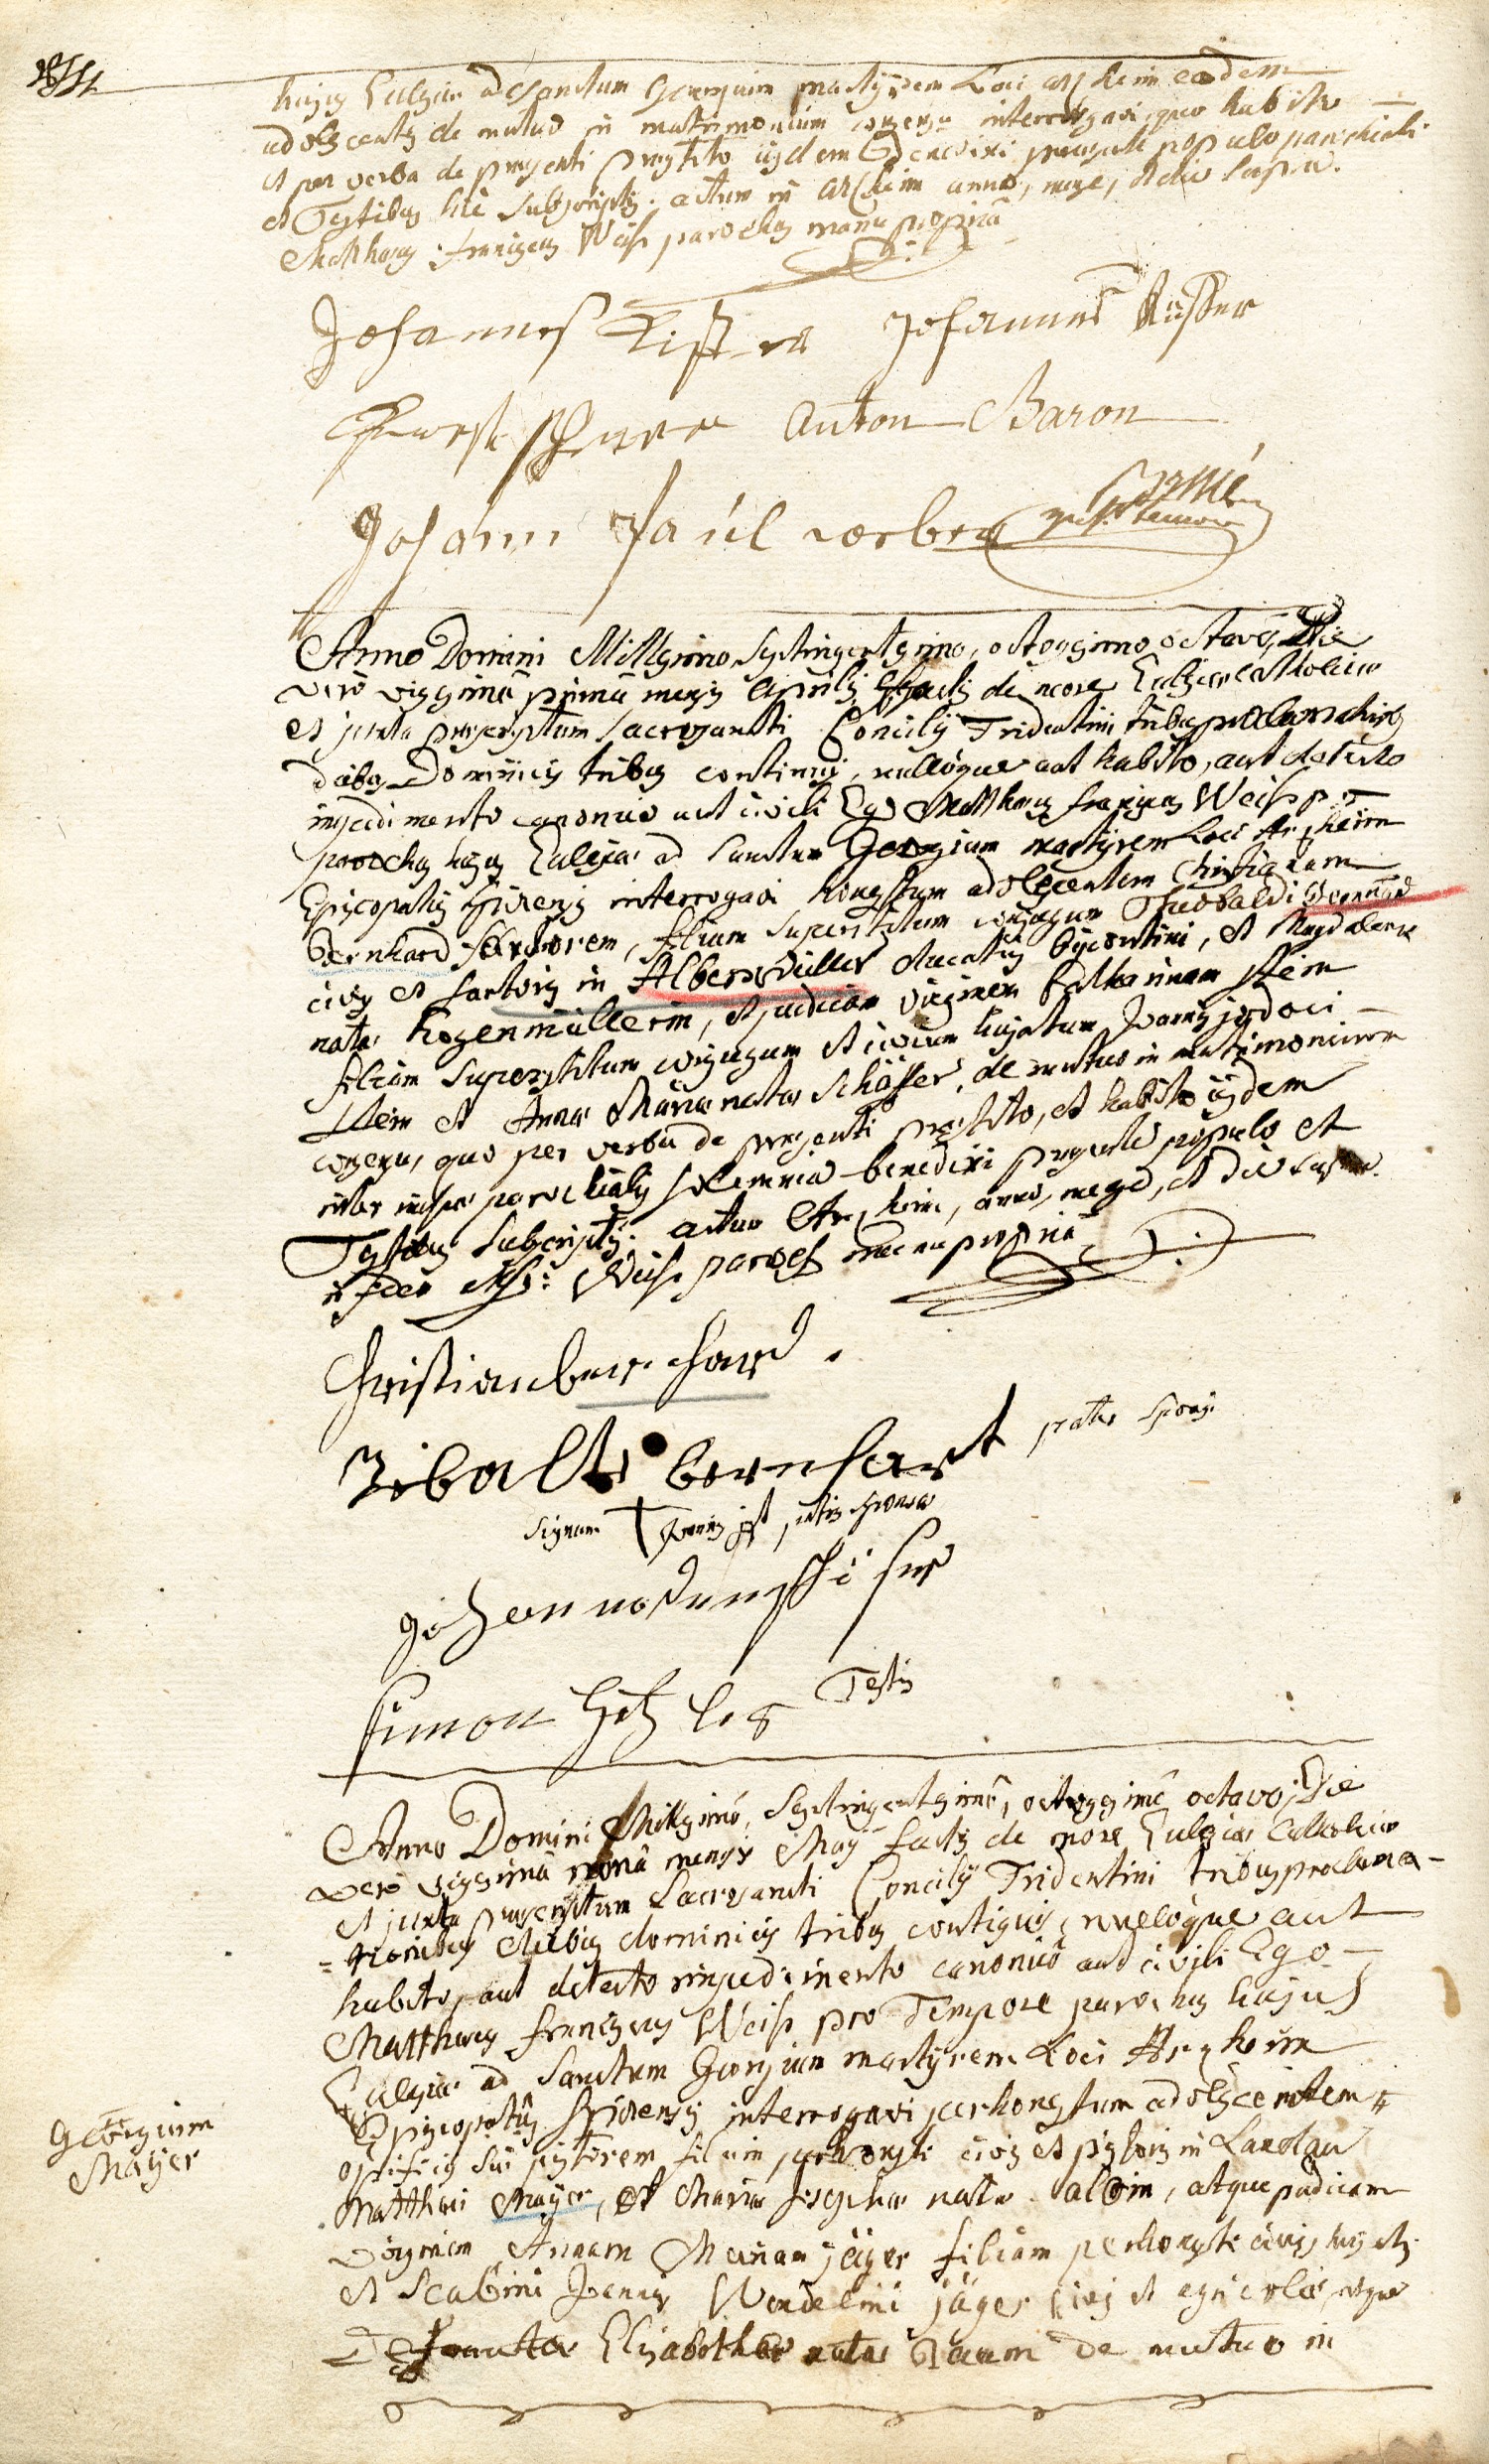 hujus Ecclesiae ad Sanctum Georgium martyrem Loci Artzheim eosdem
adolescentes de mutuo in matrimonium consensu interrogavi, quo habito
et per verba de praesenti praestito iisdem benedixi praesente populo parochiali
et Testibus hic subscriptis. actum in Artzheim anno, mense, et die supra.
Matthaeus franciscus Weiss parochus manu propria
Johannes Johannes
Anton Baron
Johann Paul
Anno Domini Millesimo Septingentesimo, octogesimo octavo, Die
vero vigesima prima mensis Aprilis factis de more Ecclesiae catholicae
et juxta praescriptum sacrosancti Concilii Tridentini tribus proclamationibus
diebus Dominicis tribus continuis, nulloque aut habito, aut detecto
impedimento canonico aut civili Ego Matthaeus franciscus Weiss p. t.
parochus hujus Ecclesiae ad Sanctum Georgium martyrem Loci Artzheim
Episcopatus Spirensis interrogavi honestum adolescentem Christianum
Bernhard sartorem, filium superstitum conjugum Theobaldi Bernhard
civis et sartoris in Albersweiller Ducatus bipontini, et Magdalenae
natae Hogenmüllerin, et pudicam virginem Catharinam Stein
filiam superstitum conjugum et civium hujatum Joannis jodoci
Stein et Annae Mariae natae Schäffer, de mutuo in matrimonium
consensu, quo per verba de praesenti praestito, et habito iisdem
inter missae parochialis solemnia benedixi praesente populo et
Testibus subscriptis. actum Artzheim, anno, mense, et die supra.
in fidem Weiss paroch manu propria
Christian bernhard.
Tibalt bernhart pater sponsi
signum † Joannis patris sponsae
Simon Testis
Anno Domini Millesimo, Septingentesimo, octogesimo octavo, Die
vero vigesima nona mensis Maij factis de more Ecclesiae Catholicae
et juxta praescriptum Sacrosancti Concilij Tridentini tribus proclama-
=tionibus diebus dominicis tribus contiguis, nulloque aut
habito, aut detecto impedimento canonico aut civili Ego
Matthaeus franciscus Weiss pro Tempore parochus hujus
Ecclesiae ad Sanctum Georgium martyrem Loci Artzheim
Episcopatus Spirensis interrogavi perhonestum adolescentem
Georgium
Mayer
opificij sui pistorem filium perhonesti civis et pistoris in Landau
Matthaei Mayer, et Mariae Josephae natae, atque pudicam
virginem Annam Mariam jäger filiam perhonesti civis hujatis
et Scabini Joannis Wendelini jäger civis et agricolae, atque
Elisabethae natae de mutuo in